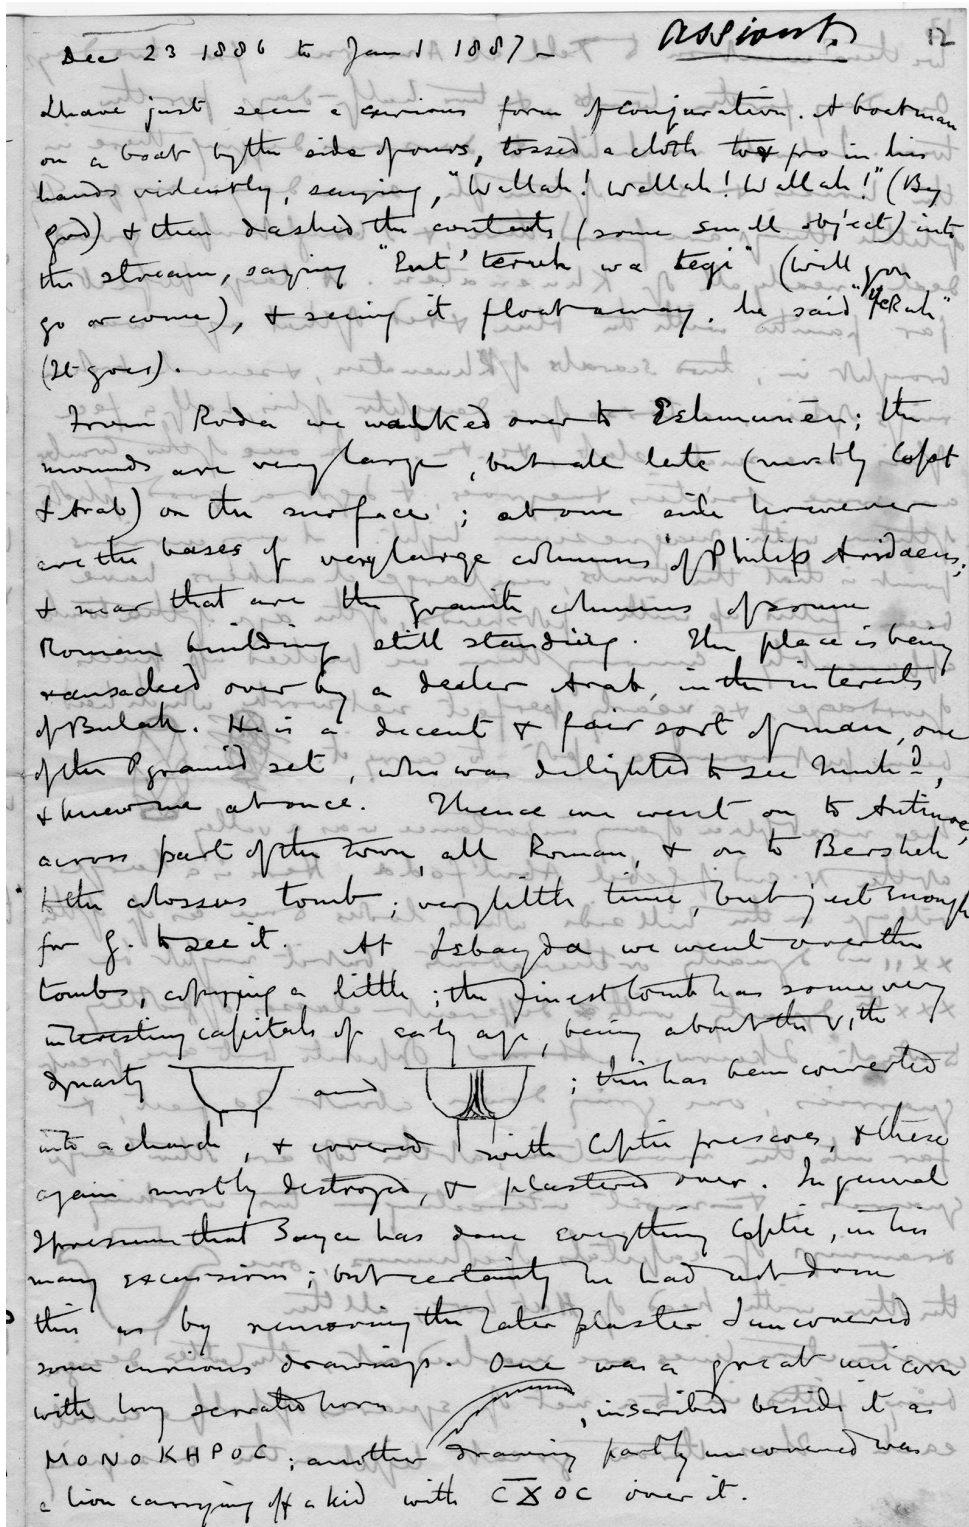 Dec 23 1886 to Jan 1 1887 — Assiout. 12
I have just seen a curious form of conjuration. A boatman
on a boat by the side of ours, tossed a cloth to & fro in his
hands violently, saying, "Wallah! Wallah! Wallah!" (By
god) & then dashed the contents (some small object) into
the stream, saying "Ent' terueh wa tegi" (will you
go or come), & seeing it float away, he said "Yeruh"
(It goes).
From Roda we walked over to Eshmunên; the
mounds are very large, but all late (mostly Copt
& Arab) on the surface; at one side however
are the bases of very large columns of Philip Aridaeus;
& near that are the granite columns of some
Roman building still standing. The place is being
ransacked over by a dealer Arab, in the interests
of Bulak. He is a decent & fair sort of man, one
of the Pyramid set, who was delighted to see
& knew me at once. Thence we went on to Antinoe,
across part of the town, all Roman, & on to Bersheh
to the colossus tomb; very little time, but just enough
for G. to see it. At Isbayda we went over the
tombs, copying a little; the finest tomb has some very
interesting capitals of early age, being about the VIth
dynasty and ; this has been converted
into a church, & covered with Coptic frescoes, & these
again mostly destroyed, & plastered over. In general
I presume that Sayce has done everything Coptic, in his
many excursions; but certainly he had not done
this as by removing the later plaster I uncovered
some curious drawings. One was a great unicorn
with long serrated horn , inscribed beside it as
ΜΟΝΟΚΗΡΟC; another drawing partly uncovered was
a lion carrying off a kid with over it.